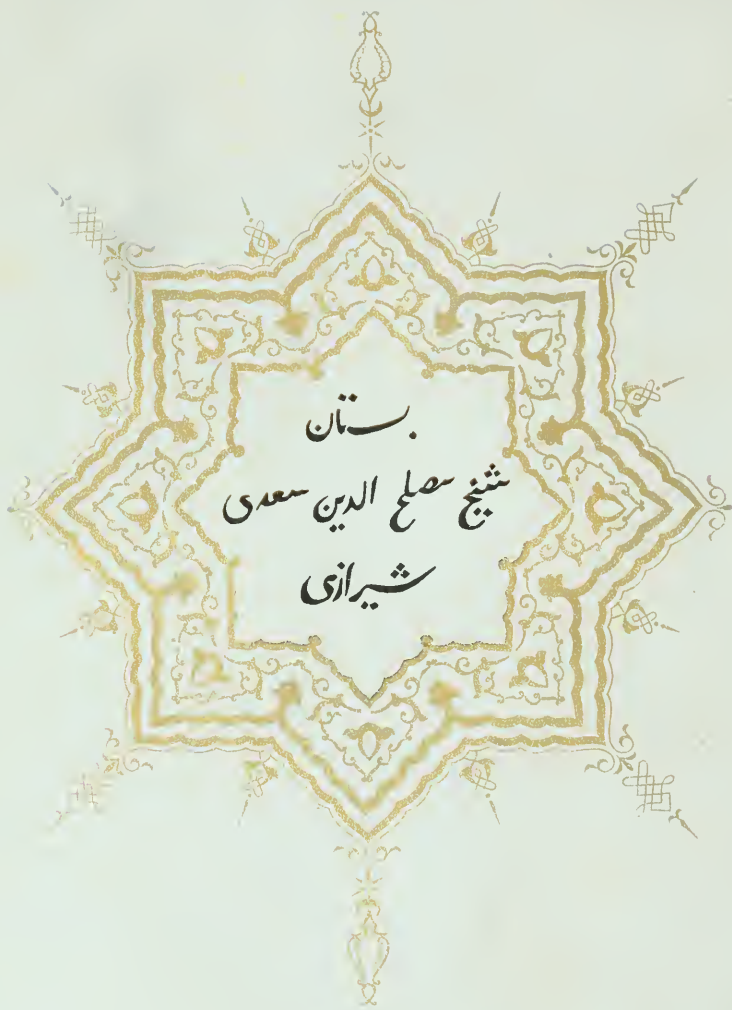 بستان
شیخ مصلح الدین سعدی
شیرازی